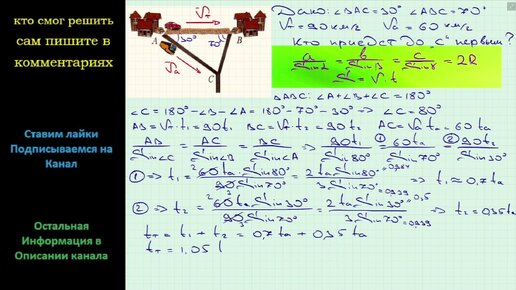 кто смог решить
сам пишите в
комментариях
Ставим лайки
Подписываемся на
Канал
Остальная
Информация в
Описании канала
Vт
A 30° 70° B
Vа
C
Дано: ∠BAC=30° ∠ABC=70°
Vт=90км/ч Vа=60 км/ч
Кто приедет до "C" первым?
a/Sinα = b/SinB = c/Sinγ = 2R
S=V·t
△ABC: ∠A+∠B+∠C=180°
∠C=180°-∠B-∠A=180°-70°-30° ⇒ ∠C=80°
AB=Vт·t₁=90t₁ BC=Vт·t₂=90t₂ AC=Vаtа=60tа
AB/Sin∠C = AC/Sin∠B = BC/Sin∠A ⇒ 90t₁/Sin80° = 60tа/Sin70° = 90t₂/Sin30°
① ⇒ t₁ = 60tаSin80°/90Sin70° = 2tаSin80°/3Sin70° ⇒ t₁≈0,7tа
② ⇒ t₂ = 60tаSin30°/90Sin70° = 2tаSin30°/3Sin70° ⇒ t₂=0,35tа
tт=t₁+t₂=0,7tа+0,35tа
tт=1,05